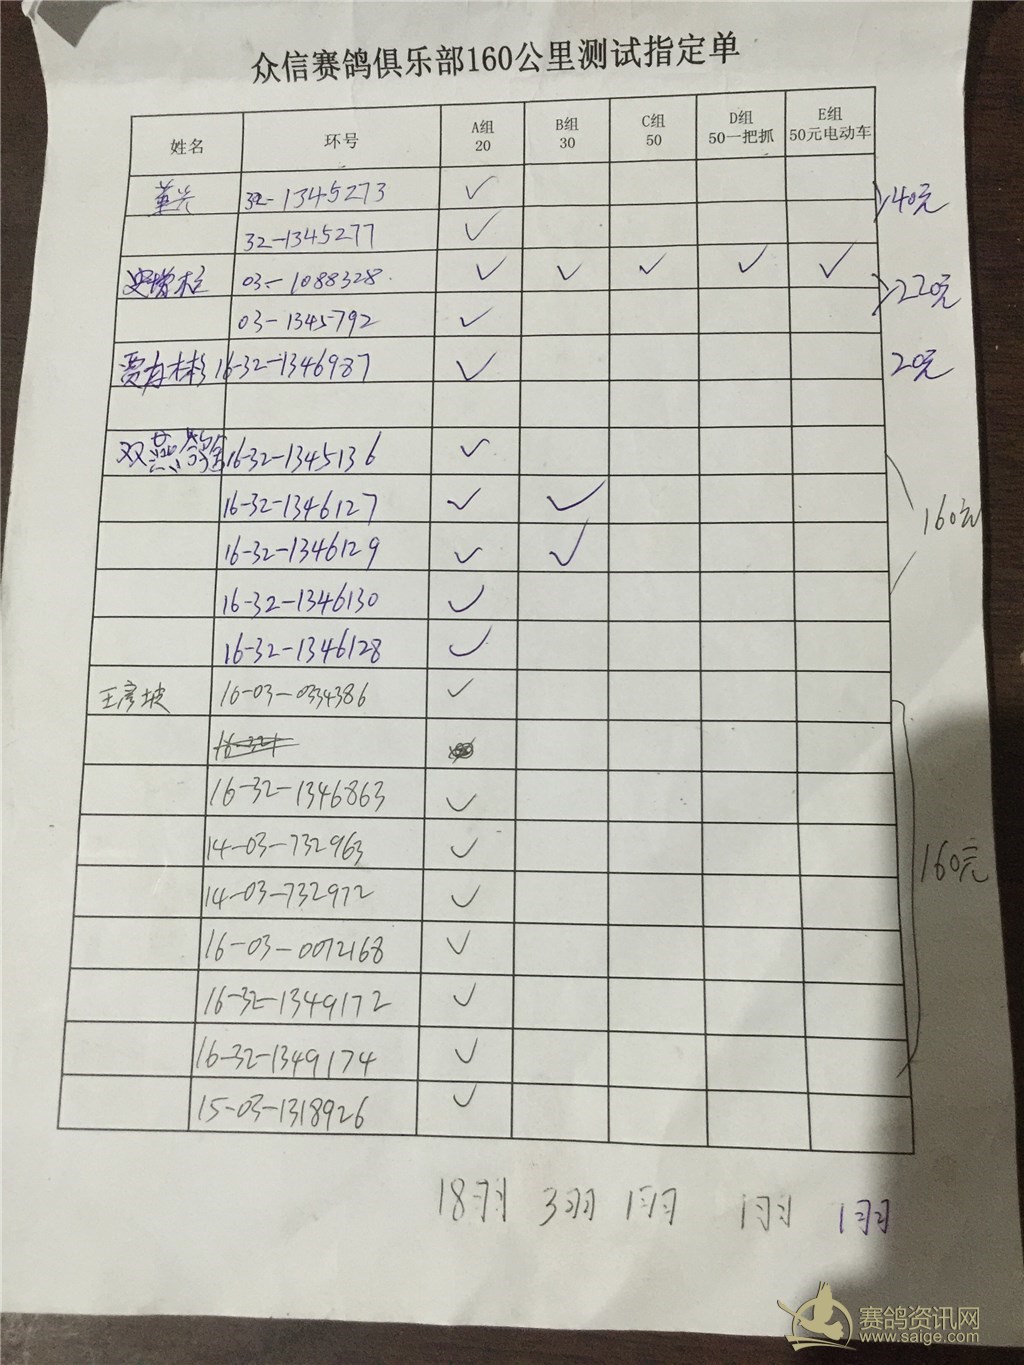 众信赛鸽俱乐部160公里测试指定单
姓名 环号 A组 20 B组 30 C组 50 D组 50一把抓 E组 50元电动车
32-1345273 ✓ 40元
32-1345277 ✓
03-1088328 ✓ ✓ ✓ ✓ ✓ 220元
03-1345792 ✓
16-32-1346987 ✓ 20元
双燕鸽舍 16-32-1345136 ✓
16-32-1346127 ✓ ✓ 160元
16-32-1346129 ✓ ✓
16-32-1346130 ✓
16-32-1346128 ✓
王彦坡 16-03-0334386 ✓
16-32-1346863 ✓
14-03-732963 ✓ 160元
14-03-732972 ✓
16-03-0072168 ✓
16-32-1349172 ✓
16-32-1349174 ✓
15-03-1318926 ✓
18羽 3羽 1羽 1羽 1羽
赛鸽资讯网
www.saige.com